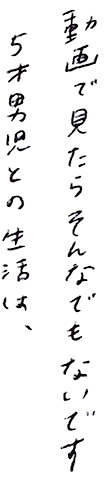 動画で見たらそんなでもないです
5才男児との生活は、